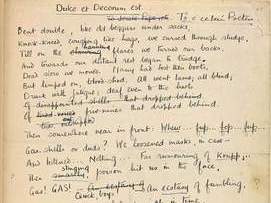 Dulce et Decorum est.
To a certain Poetess
Bent double, like old beggars under sacks,
Knock-kneed, coughing like hags, we cursed through sludge,
haunting
Till on the flares we turned our backs,
And towards our distant rest began to trudge.
Dead slow we moved. Many had lost their boots,
But limped on, blood-shod. All went lame; all blind;
Drunk with fatigue; deaf even to the hoots
Of disappointed shells that dropped behind.
Of five-nines that dropped behind.
Then somewhere near in front: Whew... fup... fop... fup...
Gas-shells or duds? We loosened masks, in case —
And listened... Nothing... Far rumouring of Krupp;...
stinging
Then poison hit us in the face,
Gas! GAS! An ecstasy of fumbling,
Quick, boys!